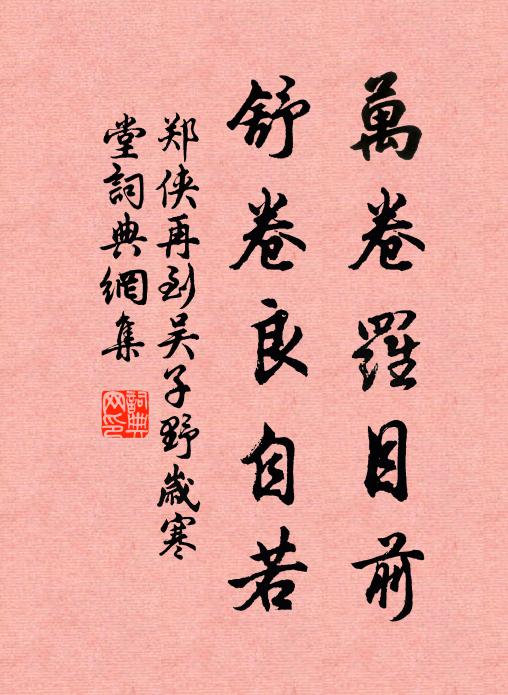 萬卷羅目前
舒卷良自若
郑侠再到吴子野歲寒
堂詞典網集
詞典網印